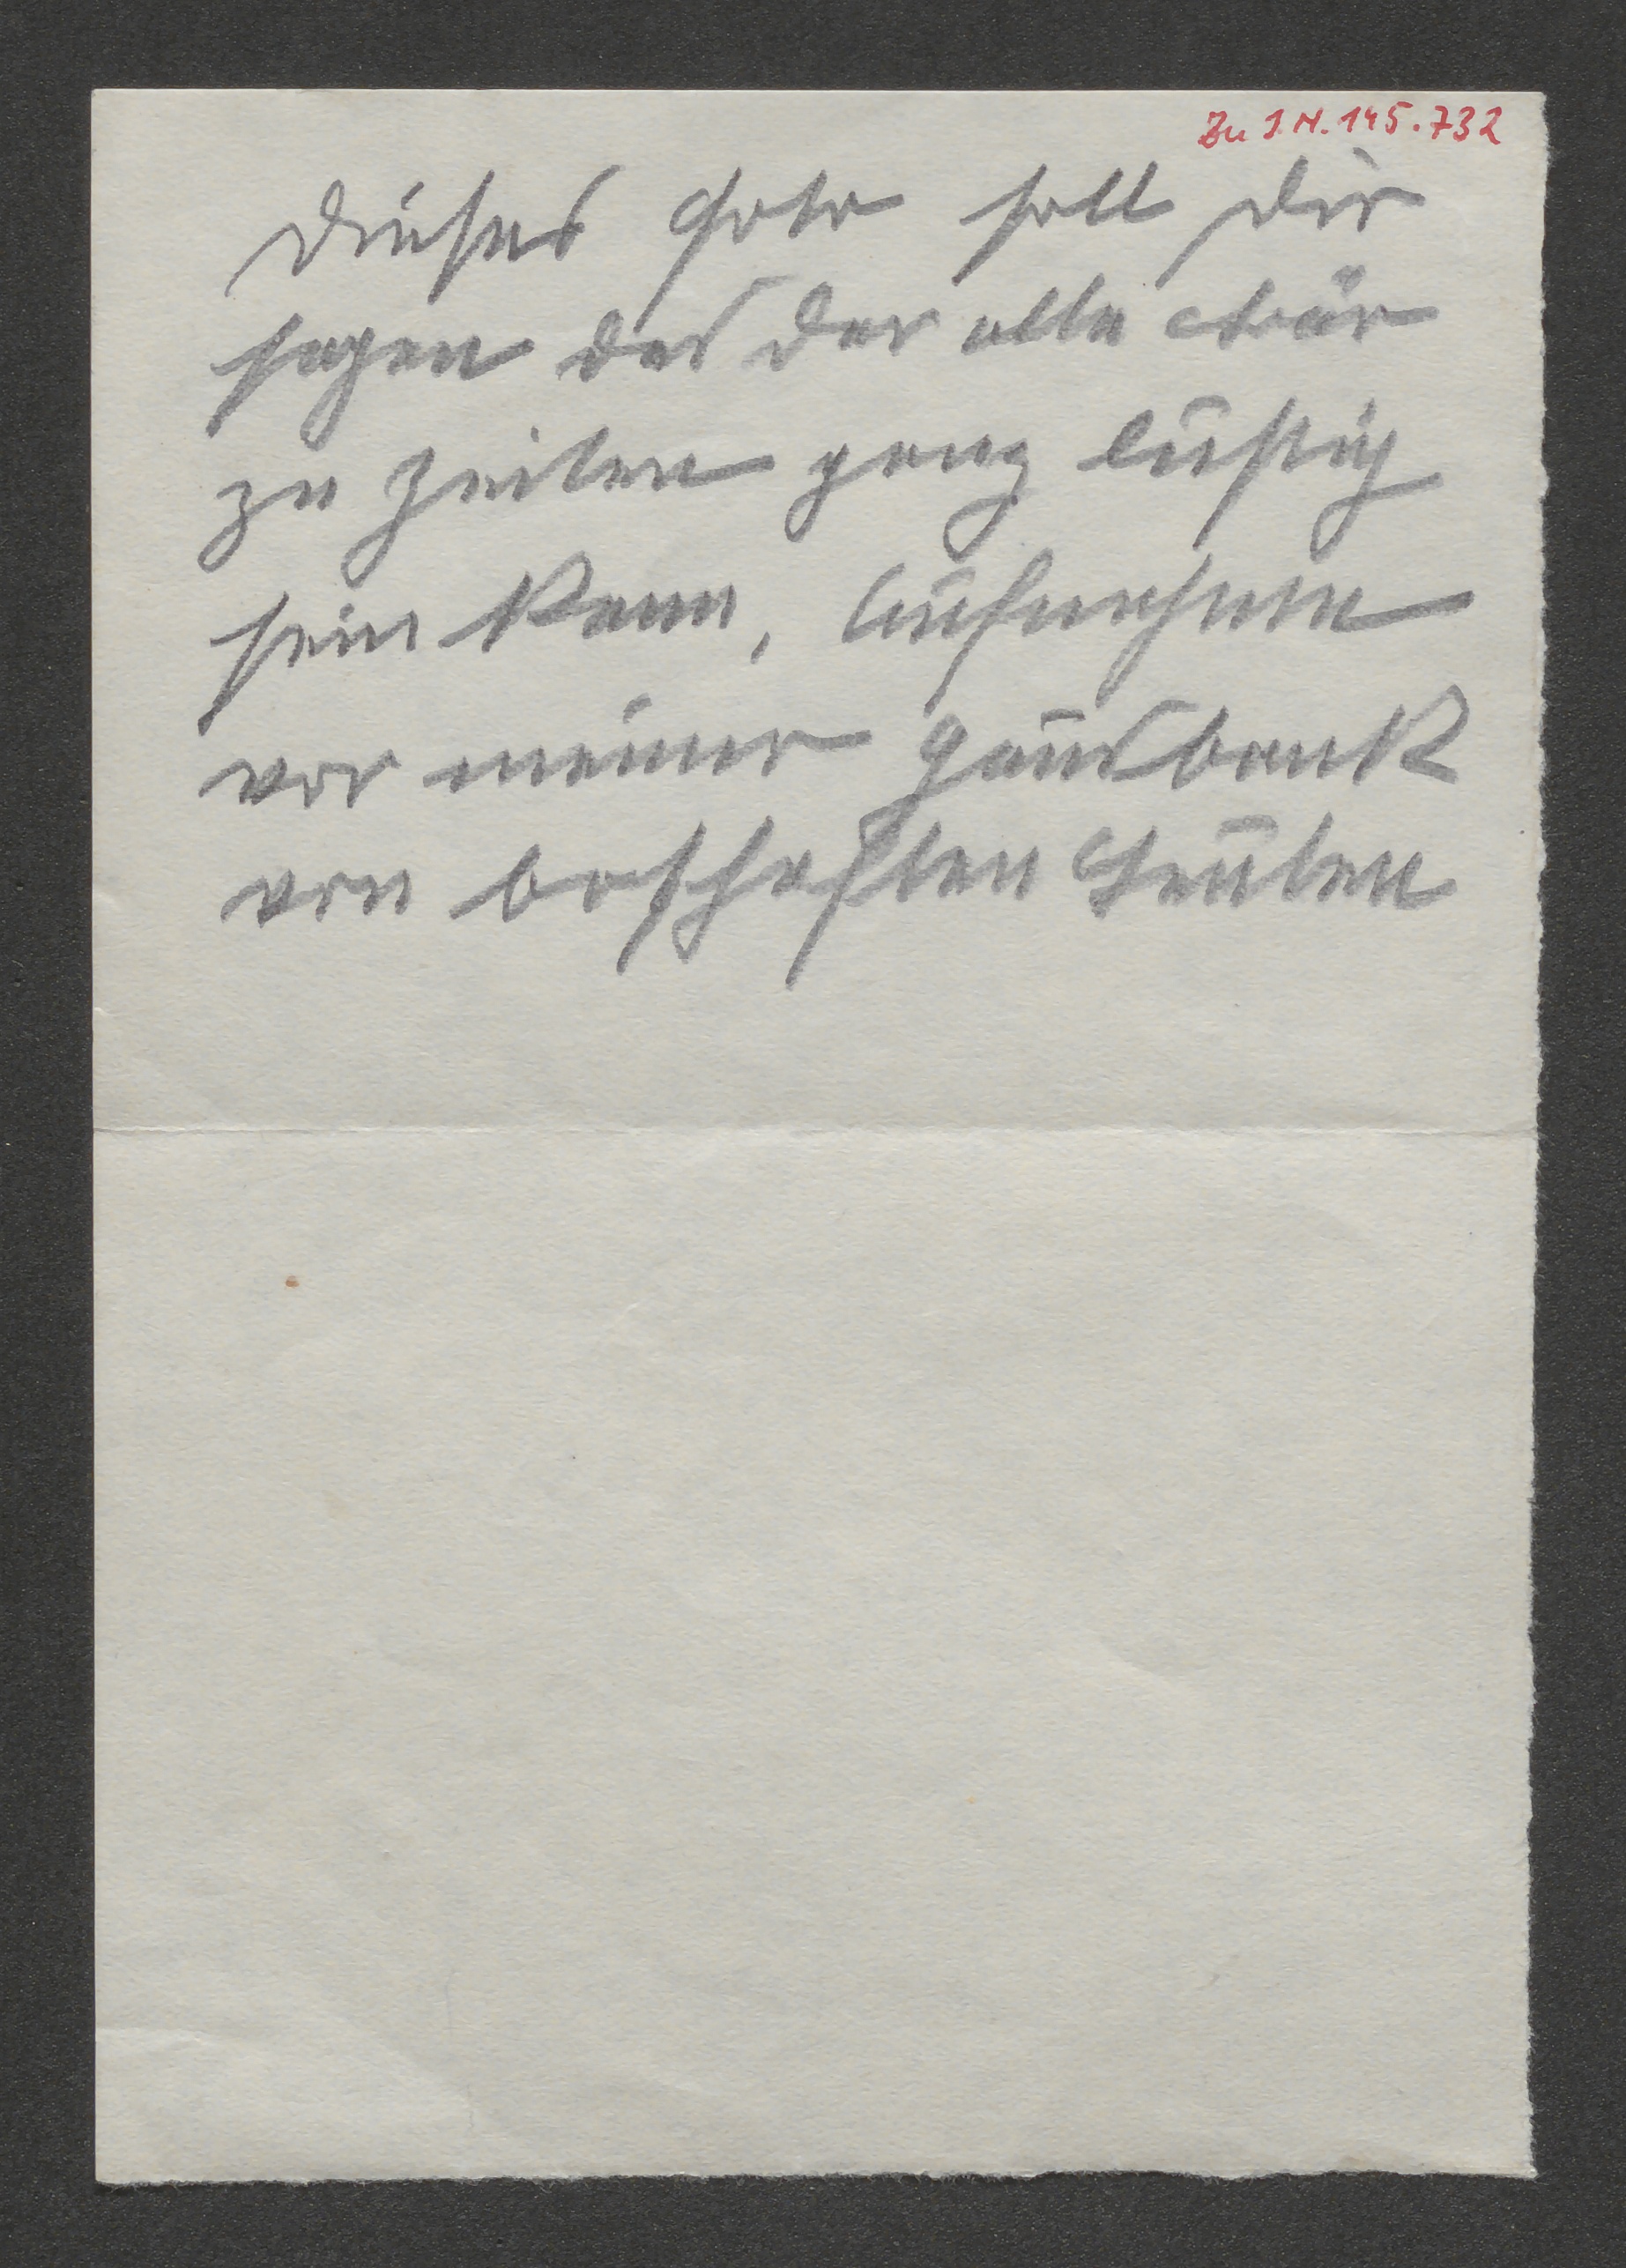 Zu I.N. 145.732
Dieses Foto soll dir
sagen das der alte Bär
zu Zeiten ganz lustig
sein kann, Aufnahme
vor meiner Hausbank
von boshaften Leuten